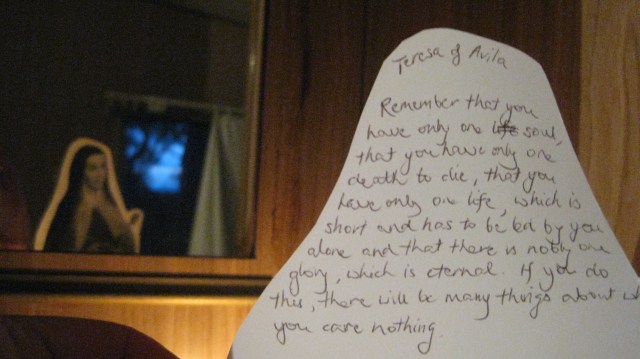 Teresa of Avila
Remember that you
have only one life soul,
that you have only one
death to die, that you
have only one life, which is
short and has to be led by you
alone and that there is only one
glory, which is eternal. If you do
this, there will be many things about
you care nothing